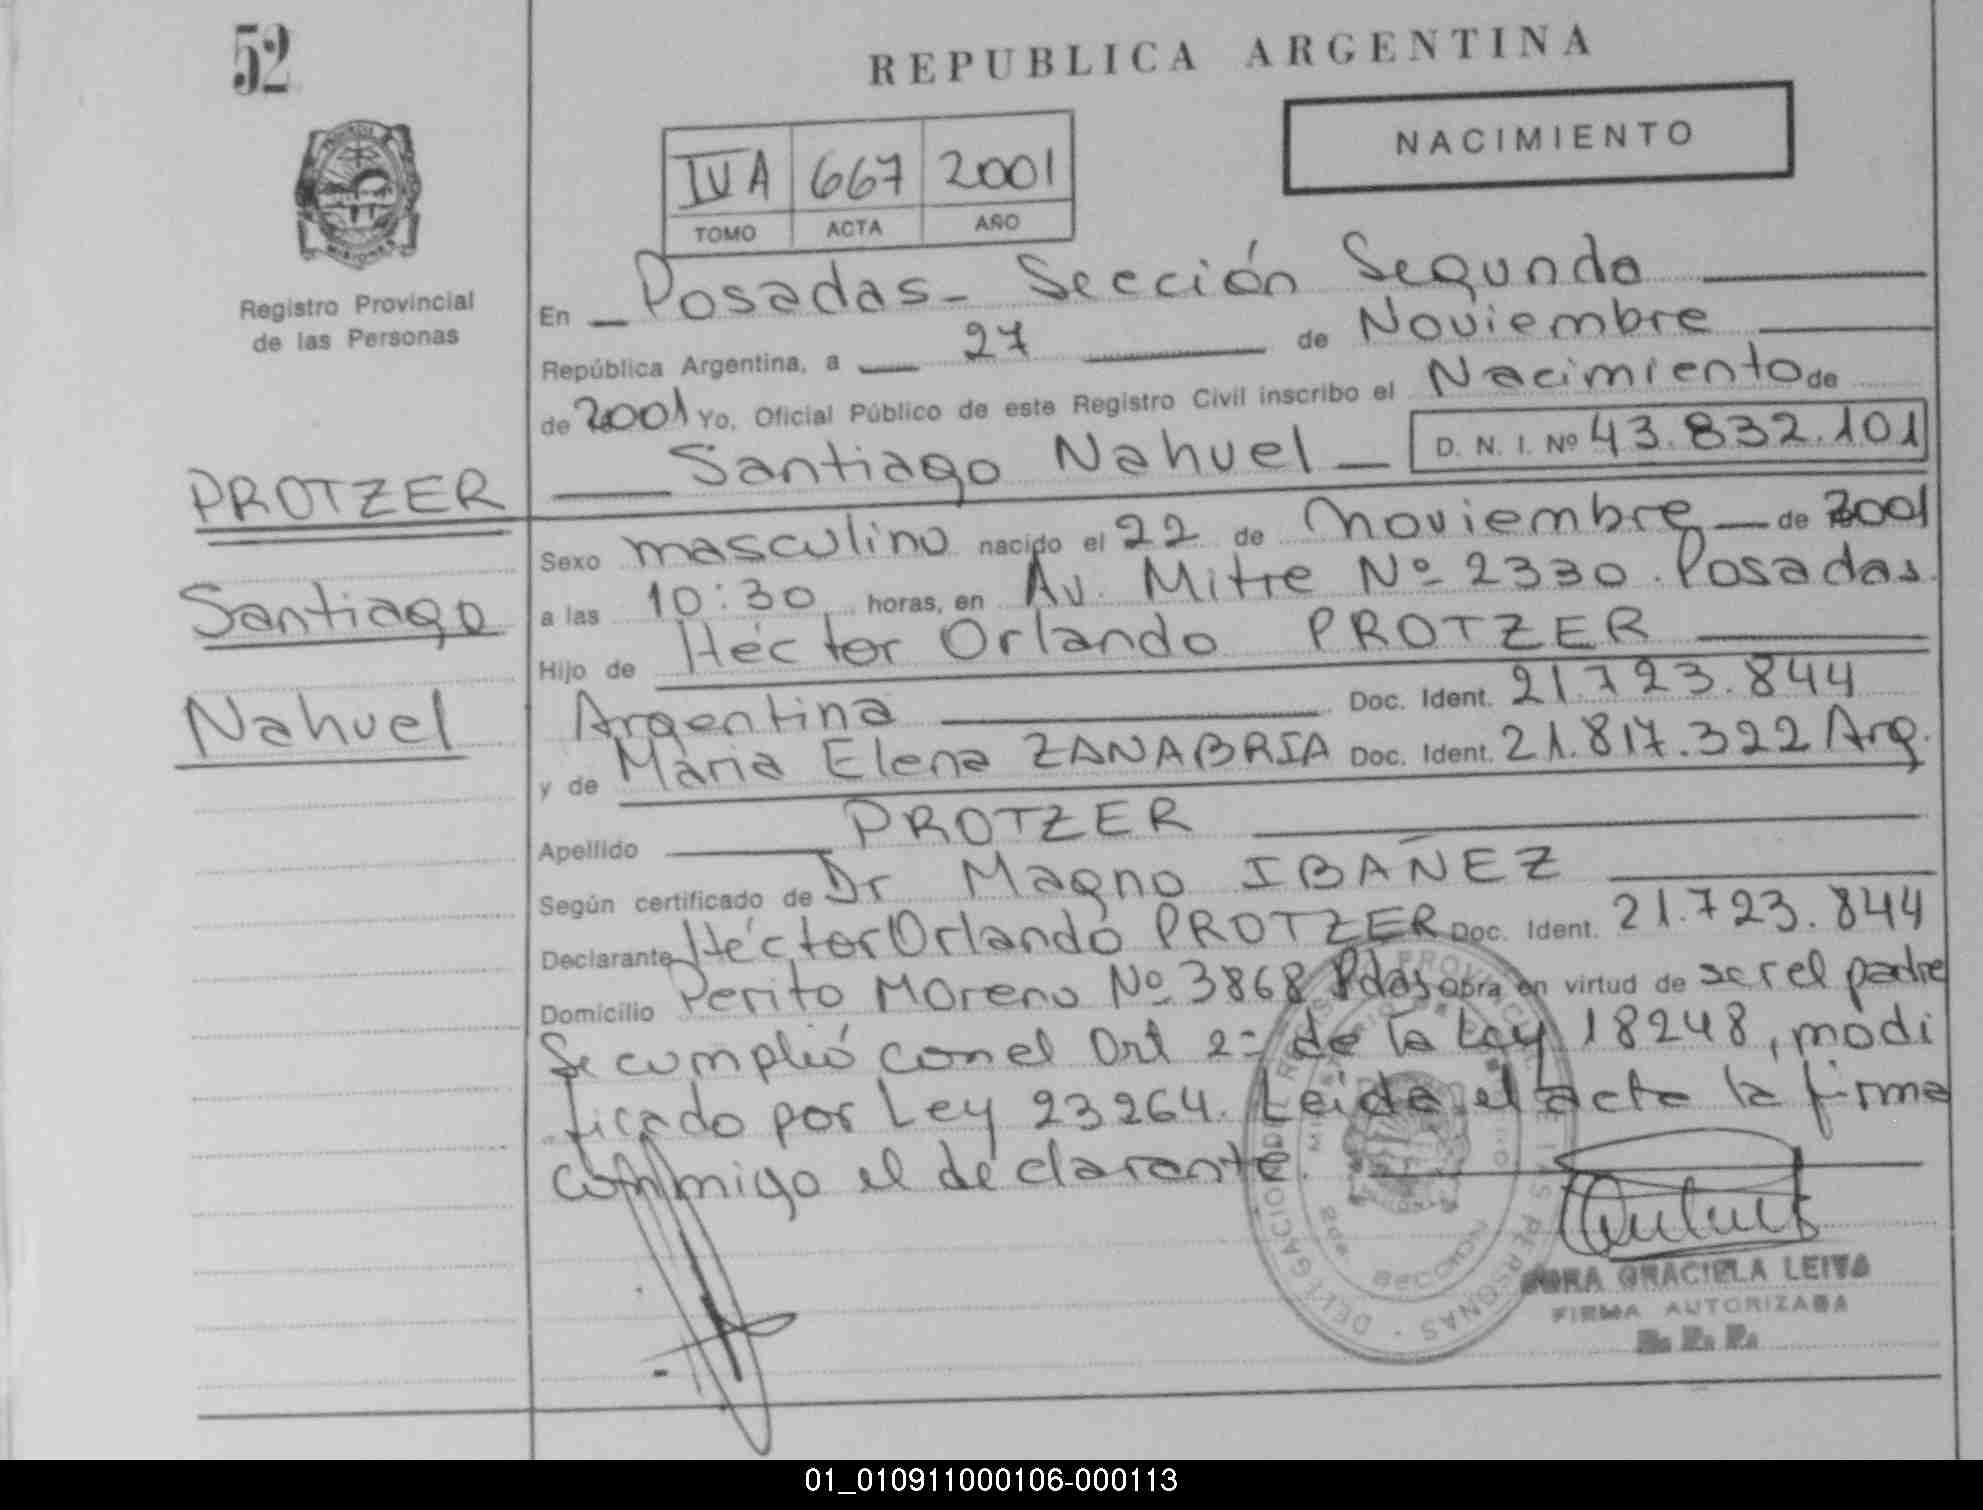 52
REPUBLICA ARGENTINA
NACIMIENTO
IVA 667 2001
TOMO ACTA AÑO
MISIONES
Registro Provincial
de las Personas
En Posadas - Sección Segunda
República Argentina, a 27 de Noviembre
de 2001 Yo, Oficial Público de este Registro Civil inscribo el Nacimiento de
Santiago Nahuel D. N. I. Nº 43.832.101
PROTZER
Santiago
Nahuel
Sexo masculino nacido el 22 de noviembre de 2001
a las 10:30 horas, en Av. Mitre Nº 2330. Posadas.
Hijo de Héctor Orlando PROTZER
Argentina Doc. Ident. 21.723.844
y de María Elena ZANABRIA Doc. Ident. 21.817.322 Arg.
Apellido PROTZER
Según certificado de Dr Magno IBAÑEZ
Declarante Héctor Orlando PROTZER Doc. Ident. 21.723.844
Domicilio Perito Moreno Nº 3868 Pdas Obra en virtud de ser el padre
Se cumplió con el Art 2º de la Ley 18248, modi
ficado por Ley 23264. Leida el acta la firma
conmigo el declarante.
DELEGACION DEL REGISTRO PROVINCIAL DE LAS PERSONAS
2da SECCION
GRACIELA LEIVA
FIRMA AUTORIZADA
R. P. P.
01_010911000106-000113